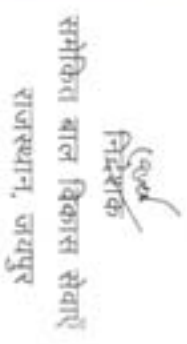 निदेशक
समेकित बाल विकास सेवाएँ
राजस्थान, जयपुर